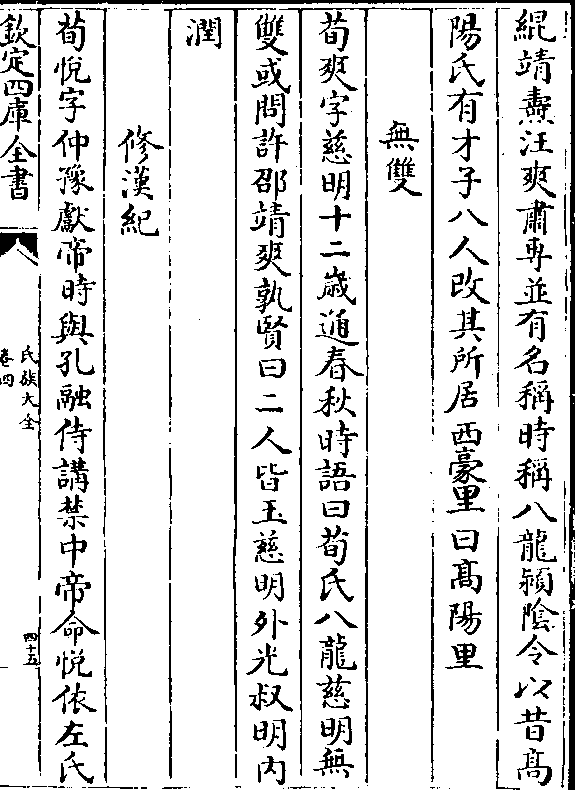 緄靖燾汪爽肅専並有名稱時稱八龍潁陰令以昔髙
陽氏有才子八人改其所居西豪里曰髙陽里
無雙
荀爽字慈明十二歲通春秋時語曰荀氏八龍慈明無
雙或問許邵靖爽孰賢曰二人皆玉慈明外光叔明内
潤
修漢紀
荀悅字仲豫獻帝時與孔融侍講禁中帝命悅依左氏
欽定四庫全書
氏族大全
卷四
四十五